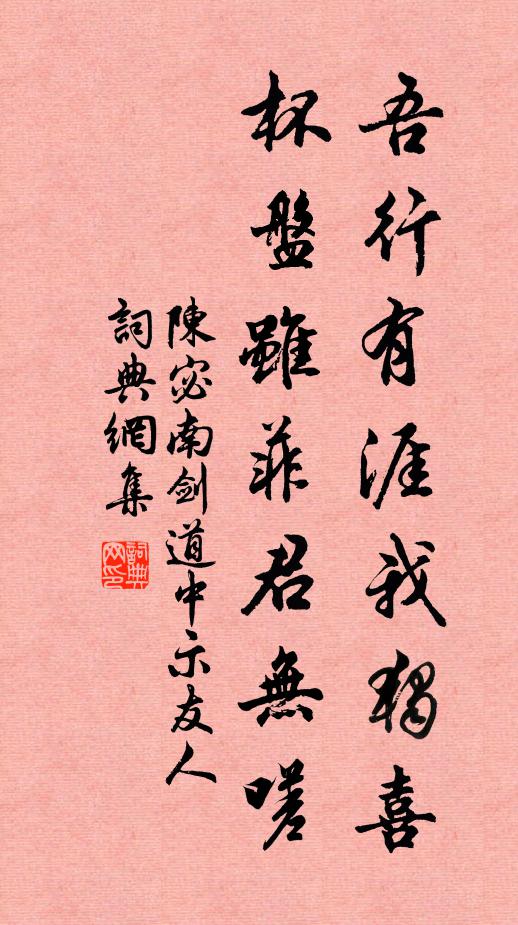 吾行有涯我獨喜
杯盤雖菲君無嗟
陳宓南劍道中示友人
詞典網集
詞典網印